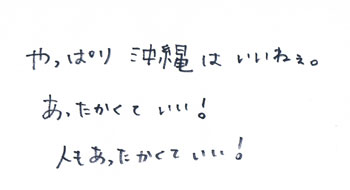 やっぱり 沖縄はいいねぇ。
あったかくていい！
人もあったかくていい！